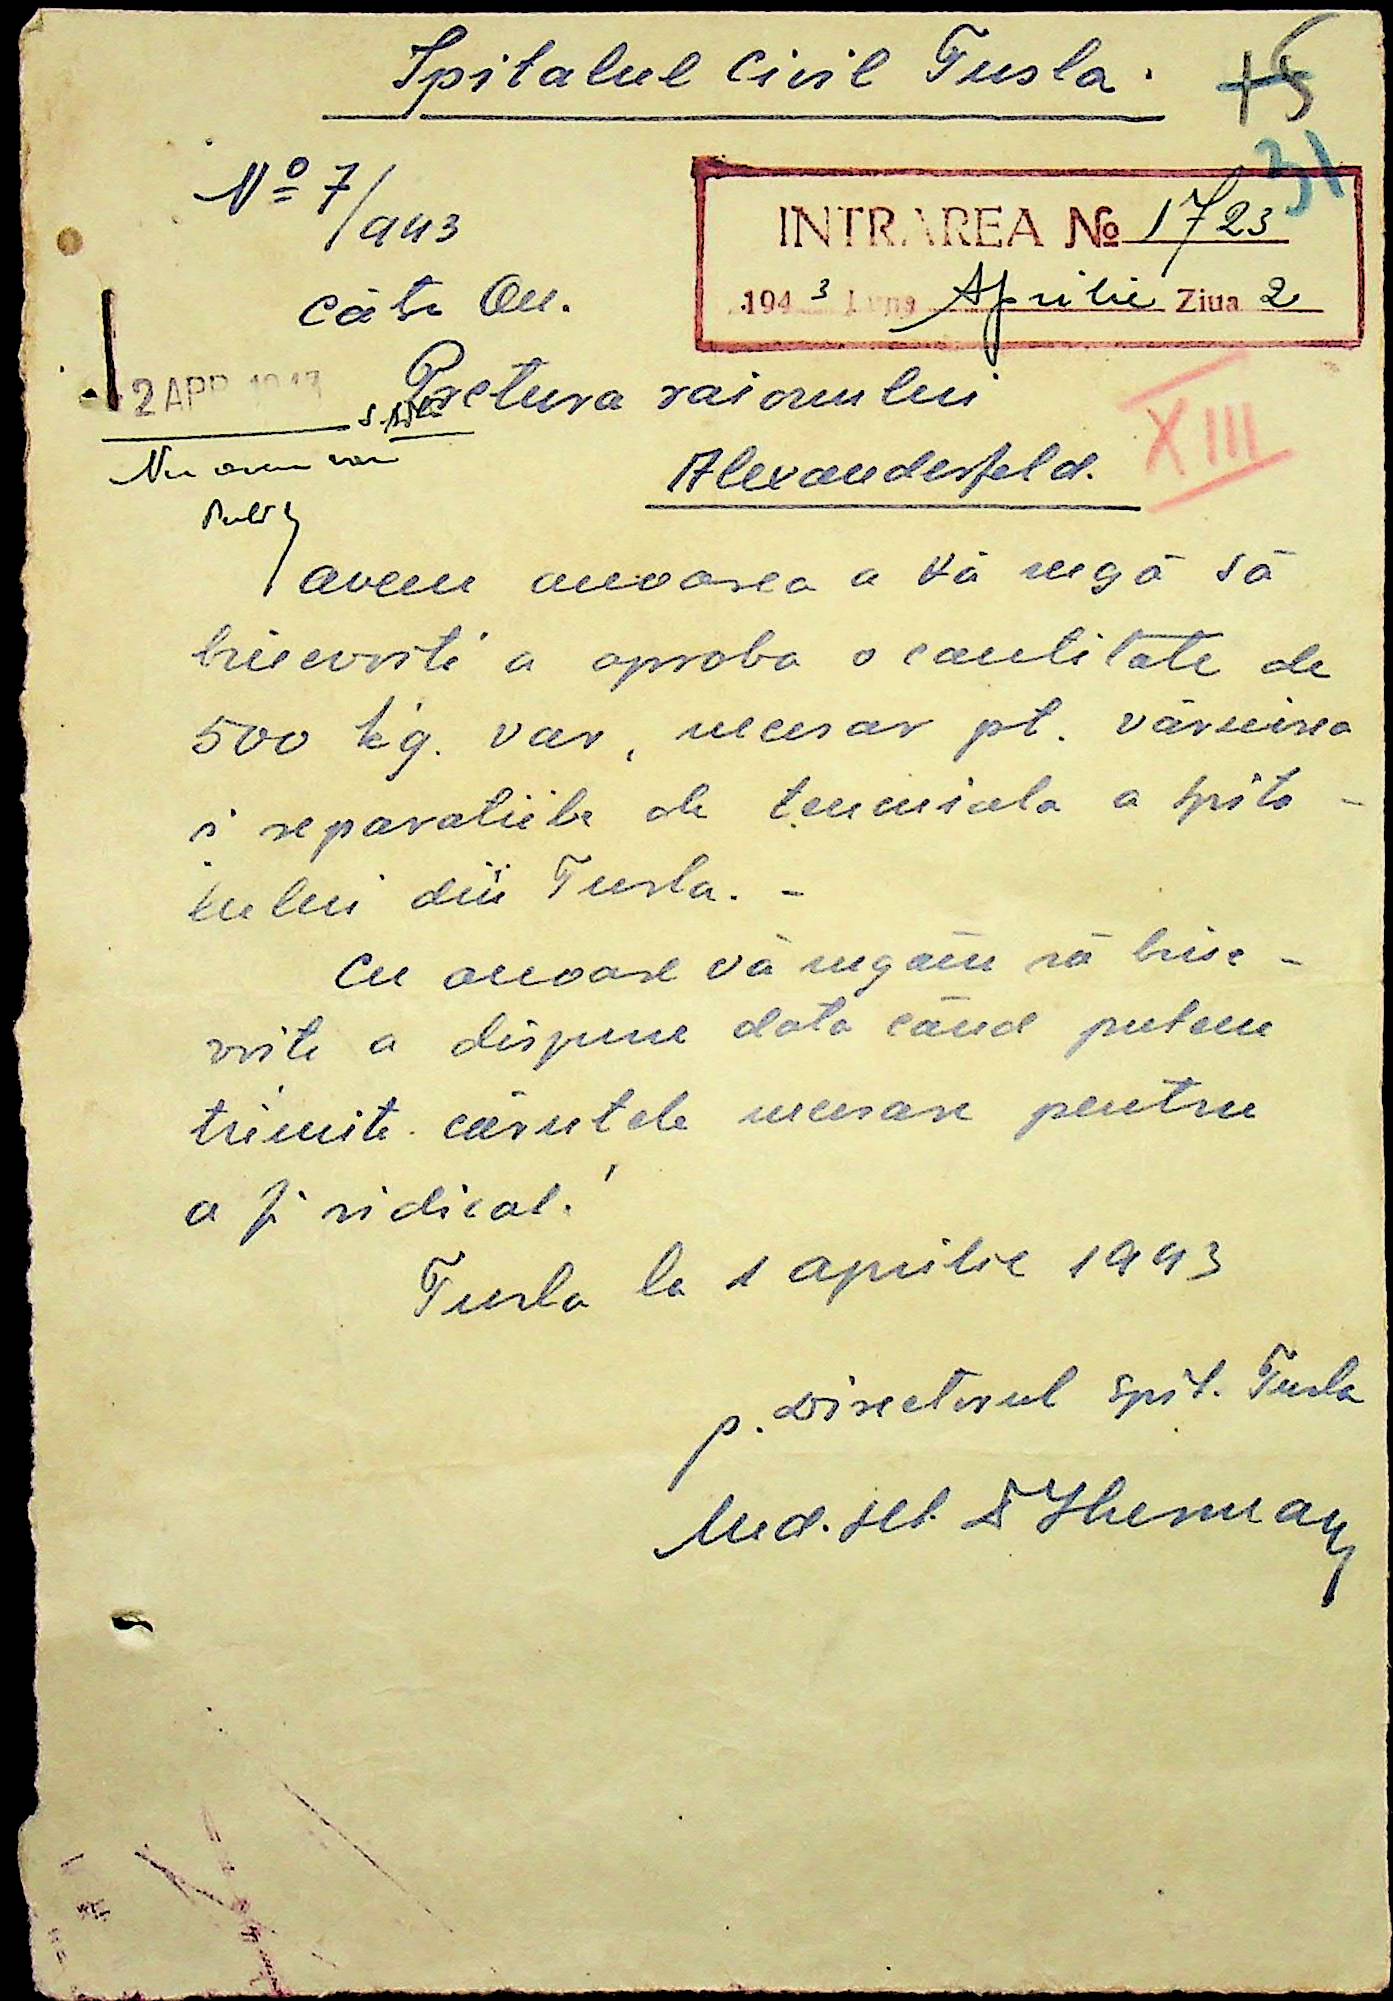 Spitalul Civil Tusla.
15
31
No 7/943
INTRAREA No 1723
1943 Luna Aprilie Ziua 2
către On.
2 APR 1943
Pretura raionului
Alexanderfeld.
XIII
Nu avem var
avem onoarea a Vă rugă să
binevoiti a aproba o cantitate de
500 kg. var, necesar pt. văruirea
si reparatiile de tencuiala a spita-
lului din Tusla. -
Cu onoare vă rugăm să bine-
voiti a dispune data când putem
trimite căruțele necesare pentru
a fi ridicat.
Tusla la 1 aprilie 1943
p. Directorul Spit. Tusla
Med. set. Dr